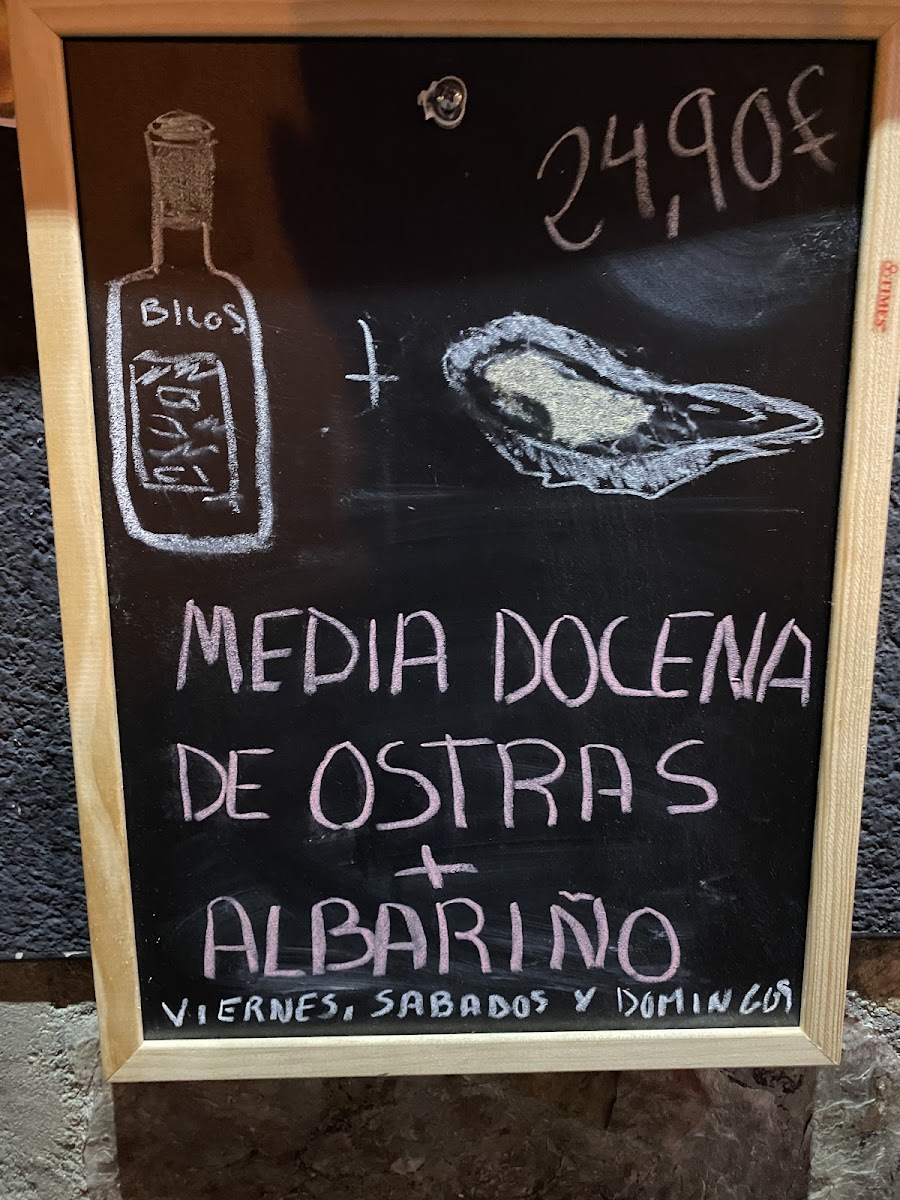 24,90€
BICOS
+
MEDIA DOCENA
DE OSTRAS
+
ALBARIÑO
VIERNES, SABADOS Y DOMINGOS
TIMES